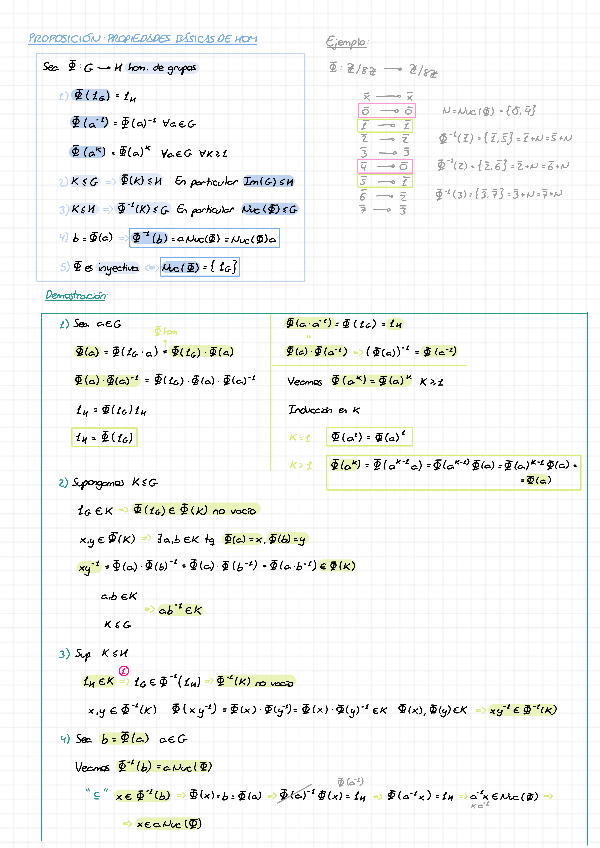 PROPOSICIÓN: PROPIEDADES BÁSICAS DE HOM
Sea Φ: G → H hom. de grupos
1) Φ(1_G) = 1_H
Φ(a⁻¹) = Φ(a)⁻¹ ∀a∈G
Φ(aᴷ) = Φ(a)ᴷ ∀a∈G ∀K≥1
2) K≤G ⇒ Φ(K)≤H En particular Im(G)≤H
3) K≤H ⇒ Φ⁻¹(K)≤G En particular Nuc(Φ)≤G
4) b=Φ(a) ⇒ Φ⁻¹(b) = aNuc(Φ) = Nuc(Φ)a
5) Φ es inyectiva ⇔ Nuc(Φ) = {1_G}
Ejemplo:
Φ: Z/8Z → Z/4Z
x̄ → x̄
0̄ → 0̄
1̄ → 1̄
2̄ → 2̄
3̄ → 3̄
4̄ → 0̄
5̄ → 1̄
6̄ → 2̄
7̄ → 3̄
N = Nuc(Φ) = {0̄, 4̄}
Φ⁻¹(1̄) = {1̄, 5̄} = 1̄+N = 5̄+N
Φ⁻¹(2) = {2̄, 6̄} = 2̄+N = 6̄+N
Φ⁻¹(3) = {3̄, 7̄} = 3̄+N = 7̄+N
Demostración:
1) Sea a∈G
Φ hom
Φ(a) = Φ(1_G · a) = Φ(1_G) · Φ(a)
Φ(a) · Φ(a)⁻¹ = Φ(1_G) · Φ(a) · Φ(a)⁻¹
1_H = Φ(1_G) 1_H
1_H = Φ(1_G)
Φ(a · a⁻¹) = Φ(1_G) = 1_H
"
Φ(a) · Φ(a⁻¹) ⇒ (Φ(a))⁻¹ = Φ(a⁻¹)
Veamos Φ(aᴷ) = Φ(a)ᴷ K≥1
Inducción en K
K=1 Φ(a¹) = Φ(a)¹
K>1 Φ(aᴷ) = Φ(aᴷ⁻¹ a) = Φ(aᴷ⁻¹) Φ(a) = Φ(a)ᴷ⁻¹ Φ(a) =
= Φ(a)
2) Supongamos K≤G
1_G ∈ K ⇒ Φ(1_G) ∈ Φ(K) no vacío
x,y ∈ Φ(K) ⇒ ∃a,b∈K tq Φ(a)=x, Φ(b)=y
xy⁻¹ = Φ(a) · Φ(b)⁻¹ = Φ(a) · Φ(b⁻¹) = Φ(a · b⁻¹) ∈ Φ(K)
a,b ∈ K
⇒ ab⁻¹ ∈ K
K≤G
3) Sup K≤H
1
1_H ∈ K ⇒ 1_G ∈ Φ⁻¹(1_H) ⇒ Φ⁻¹(K) no vacío
x,y ∈ Φ⁻¹(K) Φ(xy⁻¹) = Φ(x) · Φ(y⁻¹) = Φ(x) · Φ(y)⁻¹ ∈ K Φ(x), Φ(y) ∈ K ⇒ xy⁻¹ ∈ Φ⁻¹(K)
4) Sea b = Φ(a) a∈G
Veamos Φ⁻¹(b) = aNuc(Φ)
Φ(a⁻¹)
"⊆" x ∈ Φ⁻¹(b) ⇒ Φ(x) = b = Φ(a) ⇒ Φ(a)⁻¹ Φ(x) = 1_H ⇒ Φ(a⁻¹x) = 1_H ⇒ a⁻¹x ∈ Nuc(Φ) ⇒
⇒ x ∈ aNuc(Φ)